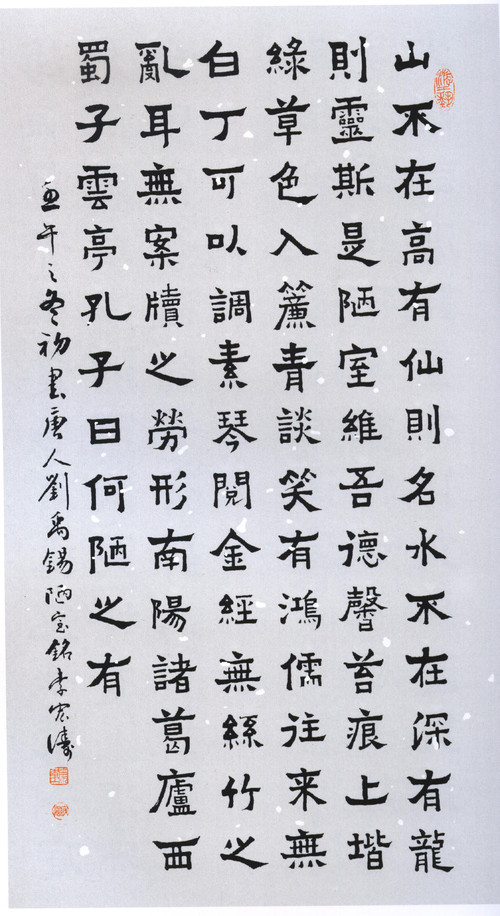 山不在高有仙則名水不在深有龍
則靈斯是陋室維吾德馨苔痕上堦
綠草色入簾青談笑有鴻儒往来無
白丁可以調素琴閱金經無絲竹之
亂耳無案牘之勞形南陽諸葛廬西
蜀子雲亭孔子曰何陋之有
午之冬初書唐人劉禹錫陋室銘李宏濤